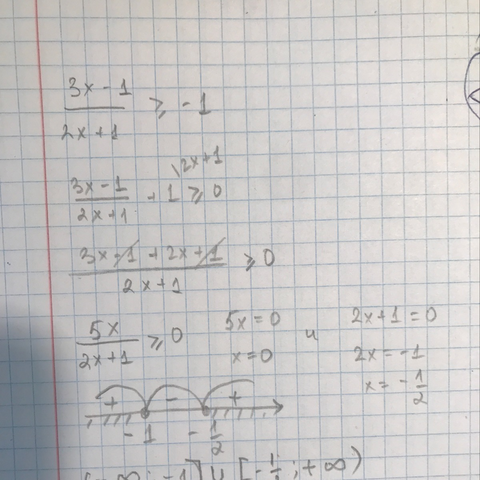 (3x - 1)/(2x + 1) ⩾ -1
(3x - 1)/(2x + 1) + 1 \2x+1 ⩾ 0
(3x - 1 + 2x + 1)/(2x + 1) ⩾ 0
5x/(2x + 1) ⩾ 0 5x = 0 и 2x + 1 = 0
x = 0 2x = -1
x = -1/2
+ - +
-1 -1/2
(-∞; -1] ∪ [-1/2; +∞)